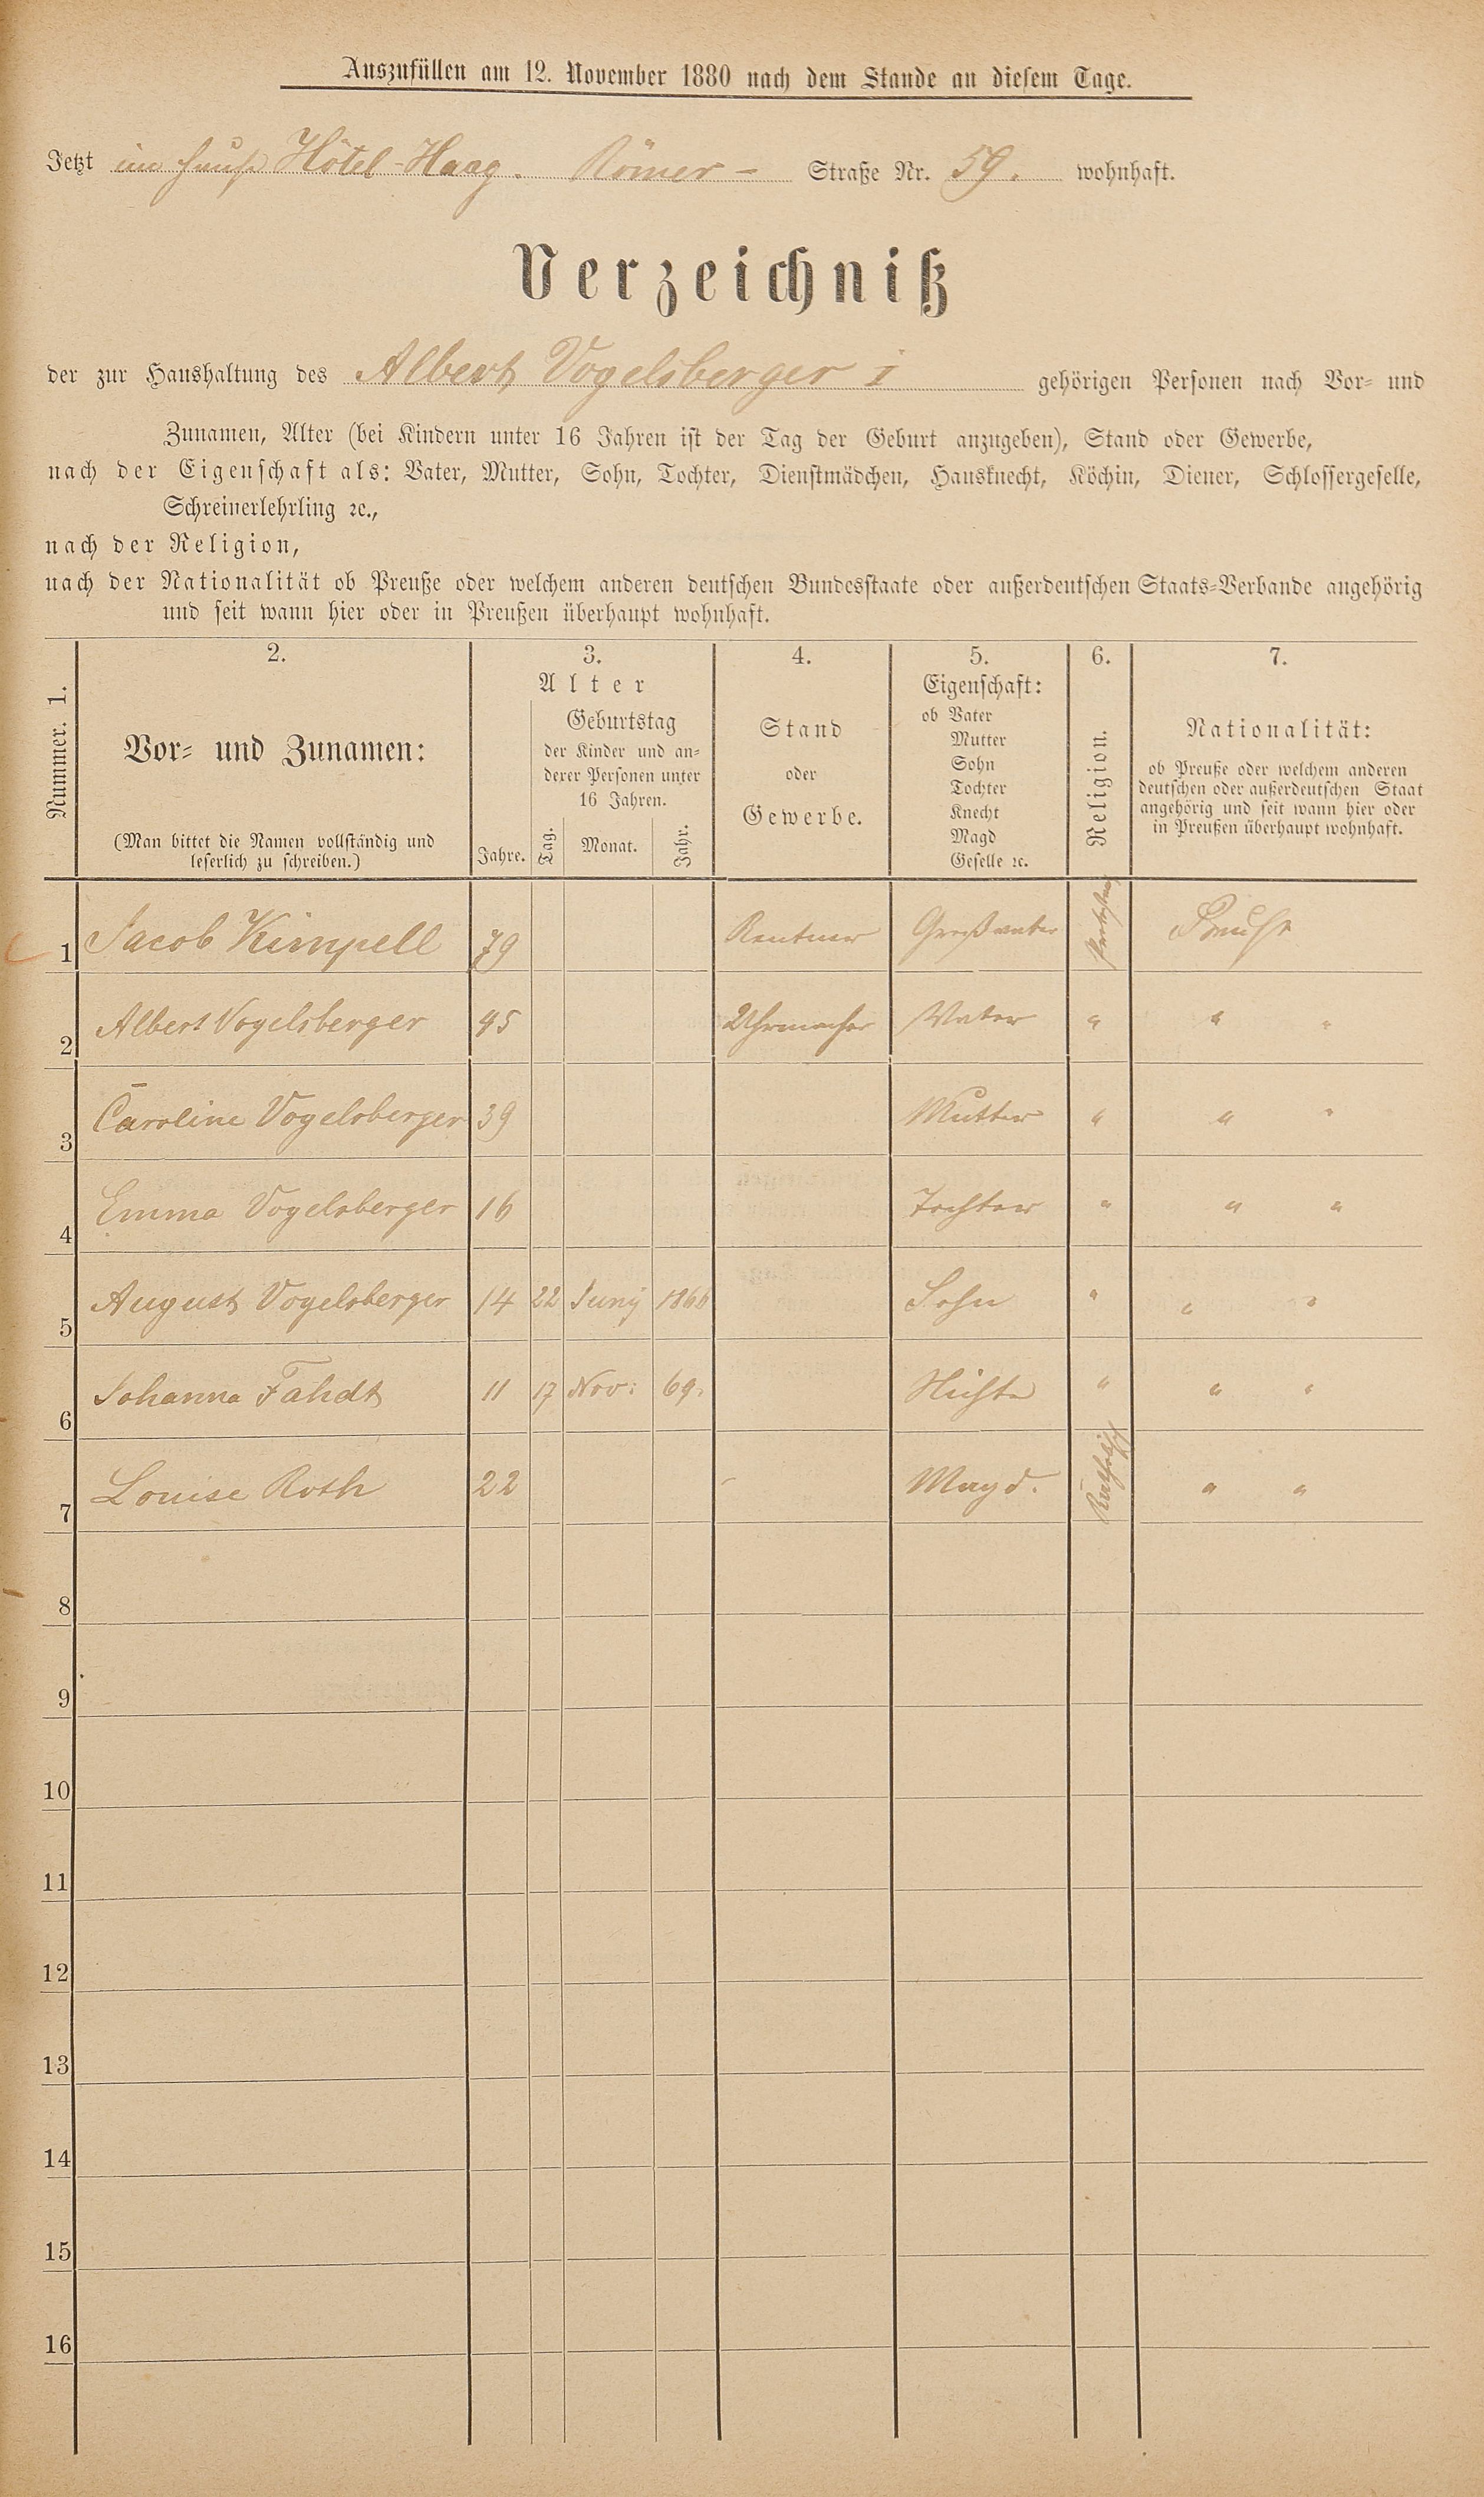 Auszufüllen am 12. November 1880 nach dem Stande an diesem Tage.
Jetzt im Hause Hôtel-Haag. Römer - Straße Nr. 59. wohnhaft.
Verzeichniß
der zur Haushaltung des Albert Vogelsberger I gehörigen Personen nach Vor- und
Zunamen, Alter (bei Kindern unter 16 Jahren ist der Tag der Geburt anzugeben), Stand oder Gewerbe,
nach der Eigenschaft als: Vater, Mutter, Sohn, Tochter, Dienstmädchen, Hausknecht, Köchin, Diener, Schlossergeselle,
Schreinerlehrling ꝛc.,
nach der Religion,
nach der Nationalität ob Preuße oder welchem anderen deutschen Bundesstaate oder außerdeutschen Staats-Verbande angehörig
und seit wann hier oder in Preußen überhaupt wohnhaft.
Nummer. 1.
2.
Vor- und Zunamen:
(Man bittet die Namen vollständig und
leserlich zu schreiben.)
3.
Alter
Jahre.
Geburtstag
der Kinder und an-
derer Personen unter
16 Jahren.
Tag. Monat. Jahr.
4.
Stand
oder
Gewerbe.
5.
Eigenschaft:
ob Vater
Mutter
Sohn
Tochter
Knecht
Magd
Geselle ꝛc.
6.
Religion.
7.
Nationalität:
ob Preuße oder welchem anderen
deutschen oder außerdeutschen Staat
angehörig und seit wann hier oder
in Preußen überhaupt wohnhaft.
1 Jacob Kimpell 79 Rentner Großvater Preuße
2 Albert Vogelsberger 45 Uhrmacher Vater " " "
3 Caroline Vogelsberger 39 Mutter " " "
4 Emma Vogelsberger 16 Tochter " " "
5 August Vogelsberger 14 22 Junÿ 1866 Sohn " " "
6 Johanna Fahdt 11 17 Nov: 69. Nichte " " "
7 Louise Roth 22 - Magd. Katholisch " "
8
9
10
11
12
13
14
15
16